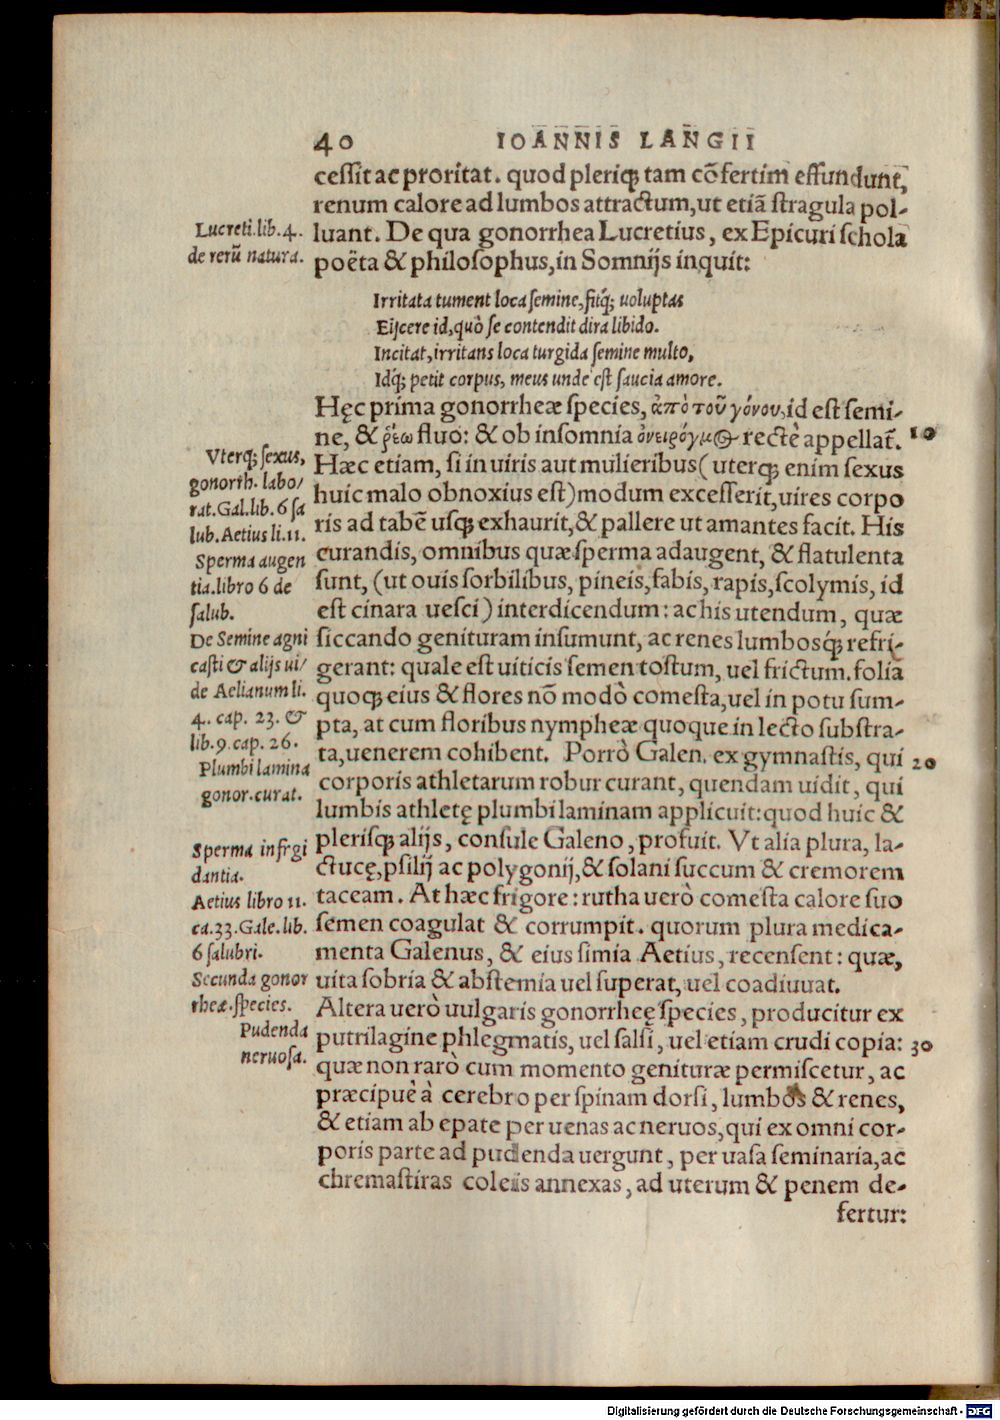 40 IOANNIS LANGII
cessit ac proritat. quod pleriq; tam cõfertim effundunt,
renum calore ad lumbos attractum, ut etiã stragula pol-
luant. De qua gonorrhea Lucretius, ex Epicuri schola
poëta & philosophus, in Somnijs inquit:
Lucreti. lib. 4.
de rerũ natura.
Irritata tument loca semine, fitq́; uoluptas
Eijcere id, quò se contendit dira libido.
Incitat, irritans loca turgida semine multo,
Idq́; petit corpus, meus unde est saucia amore.
Hęc prima gonorrheæ species, ἀπὸ τοῦ γόνου, id est semi-
ne, & ῥέω fluo: & ob insomnia ὀνειρόγμος rectè appellat̃. 10
Hæc etiam, si in uiris aut mulieribus (uterq; enim sexus
huic malo obnoxius est) modum excesserit, uires corpo
ris ad tabẽ usq; exhaurit, & pallere ut amantes facit. His
curandis, omnibus quæ sperma adaugent, & flatulenta
sunt, (ut ouis sorbilibus, pineis, fabis, rapis, scolymis, id
est cinara uesci) interdicendum: ac his utendum, quæ
siccando genituram insumunt, ac renes lumbosq́; refri-
gerant: quale est uiticis semen tostum, uel frictum. folia
quoq; eius & flores nõ modò comesta, uel in potu sum-
pta, at cum floribus nympheæ quoque in lecto substra-
ta, uenerem cohibent. Porrò Galen. ex gymnastis, qui 20
corporis athletarum robur curant, quendam uidit, qui
lumbis athletę plumbi laminam applicuit: quod huic &
plerisq; alijs, consule Galeno, profuit. Vt alia plura, la-
ctucę, psilij ac polygonij, & solani succum & cremorem
taceam. At hæc frigore: rutha uerò comesta calore suo
semen coagulat & corrumpit. quorum plura medica-
menta Galenus, & eius simia Aetius, recensent: quæ,
uita sobria & abstemia uel superat, uel coadiuuat.
Vterq; sexus,
gonorrh. labo/
rat. Gal. lib. 6 sa
lub. Aetius li. 11.
Sperma augen
tia. libro 6 de
salub.
De Semine agni
casti & alijs ui/
de Aelianum li.
4. cap. 23. &
lib. 9 cap. 26.
Plumbi lamina
gonor. curat.
Sperma infrgi
dantia.
Aetius libro 11.
ca. 33. Gale. lib.
6 salubri.
Secunda gonor
rheæ. species.
Pudenda
neruosa.
Altera uerò uulgaris gonorrheę species, producitur ex
putrilagine phlegmatis, uel salsi, uel etiam crudi copia: 30
quæ non rarò cum momento genituræ permiscetur, ac
præcipuè à cerebro per spinam dorsi, lumbos & renes,
& etiam ab epate per uenas ac neruos, qui ex omni cor-
poris parte ad pudenda uergunt, per uasa seminaria, ac
chremastiras coleis annexas, ad uterum & penem de-
fertur:
Digitalisierung gefördert durch die Deutsche Forschungsgemeinschaft - DFG